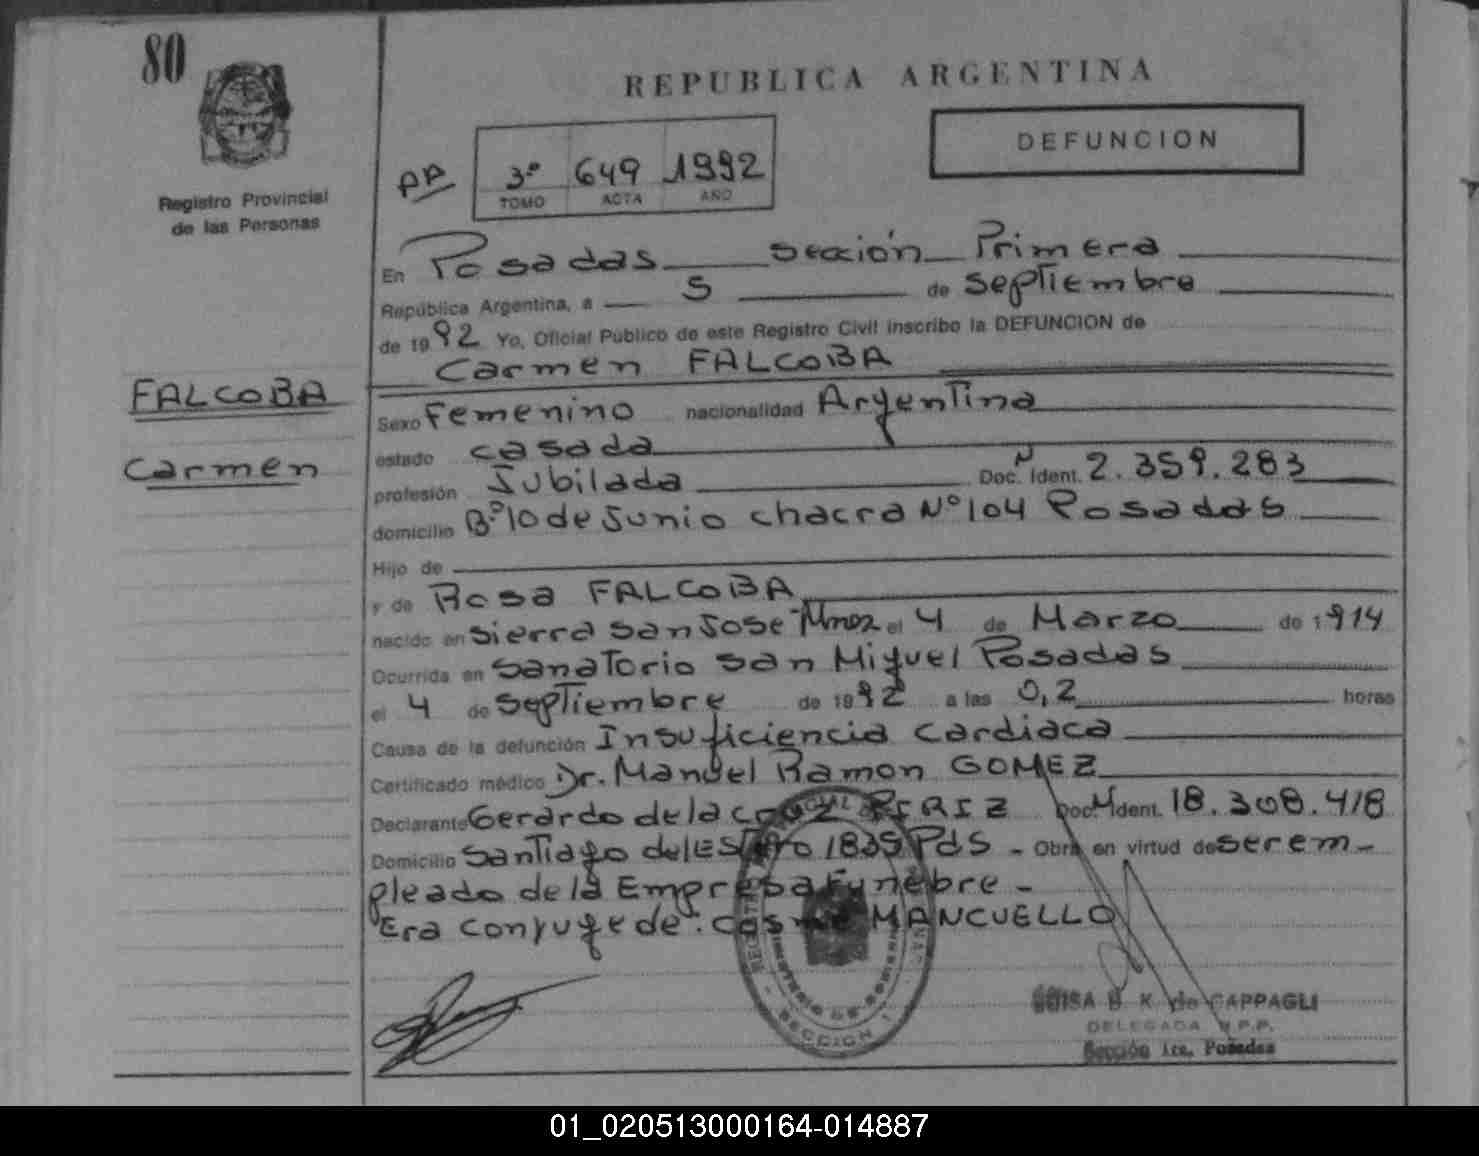 80
REPUBLICA ARGENTINA
DEFUNCION
Registro Provincial
de las Personas
AA
3º 649 1992
TOMO ACTA AÑO
En Posadas sección Primera
República Argentina, a 5 de septiembre
de 1992 Yo, Oficial Público de este Registro Civil inscribo la DEFUNCION de
Carmen FALCOBA
FALCOBA
Carmen
Sexo Femenino nacionalidad Argentina
estado casada
profesión Jubilada Doc. N Ident. 2.359.283
domicilio Bº 10 de Junio chacra Nº 104 Posadas
Hijo de
y de Rosa FALCOBA
nacido en Sierra San Jose Mnes el 4 de Marzo de 1914
Ocurrida en Sanatorio San Miguel Posadas
el 4 de septiembre de 1992 a las 0,2 horas
Causa de la defunción Insuficiencia cardiaca
Certificado médico Dr. Manuel Ramon GOMEZ
Declarante Gerardo de la Cruz Doc. N Ident. 18.308.418
Domicilio Santiago del Estero 1835 Pds - Obra en virtud de ser em-
pleado de la Empresa Funebre -
Era conyuge de: Cosme MANCUELLO
SECCION 1
B. K. de CAPPAGLI
DELEGADA R.P.P.
Sección 1ra. Posadas
01_020513000164-014887